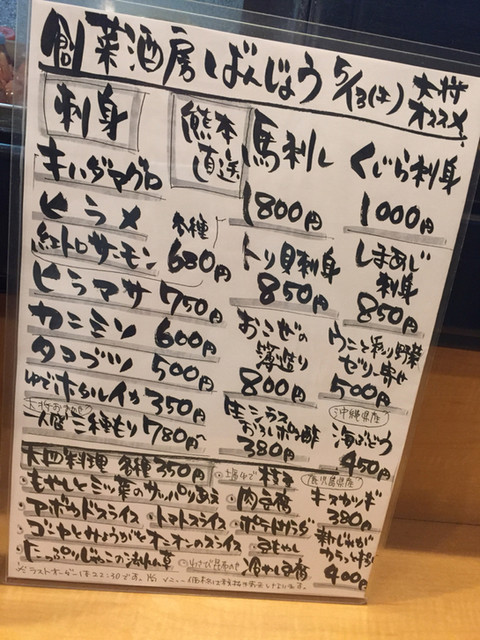 創菜酒房 ばんじょう 5/13(土) 大将オススメ
刺身
キハダマグロ
ヒラメ
紅トロサーモン
各種 680円
ヒラマサ 750円
カニミソ 600円
タコブツ 500円
ゆでホタルイカ 350円
大盛三種もり 780円
熊本直送 馬刺し
1800円
トリ貝刺身
850円
おこぜの薄造り
800円
生シラスおろしポン酢
380円
くじら刺身
1000円
しまあじ刺身
850円
ウニと彩り野菜ゼリー寄せ
500円
沖縄県産
海ぶどう
450円
鹿児島県産
キスカツギ
380円
新じゃがカラッと揚
400円
大皿料理 各種350円
・もやしとミツ葉のサッパリあえ
・アボカドスライス ・トマトスライス
・ゴーヤとみょうがとオニオンのスライス
・たっぷりじゃこの法れん草
・枝豆
・肉豆腐
・ポテトサラダ
・豆もやし
冷やし豆腐
※ラストオーダーは22:30です。